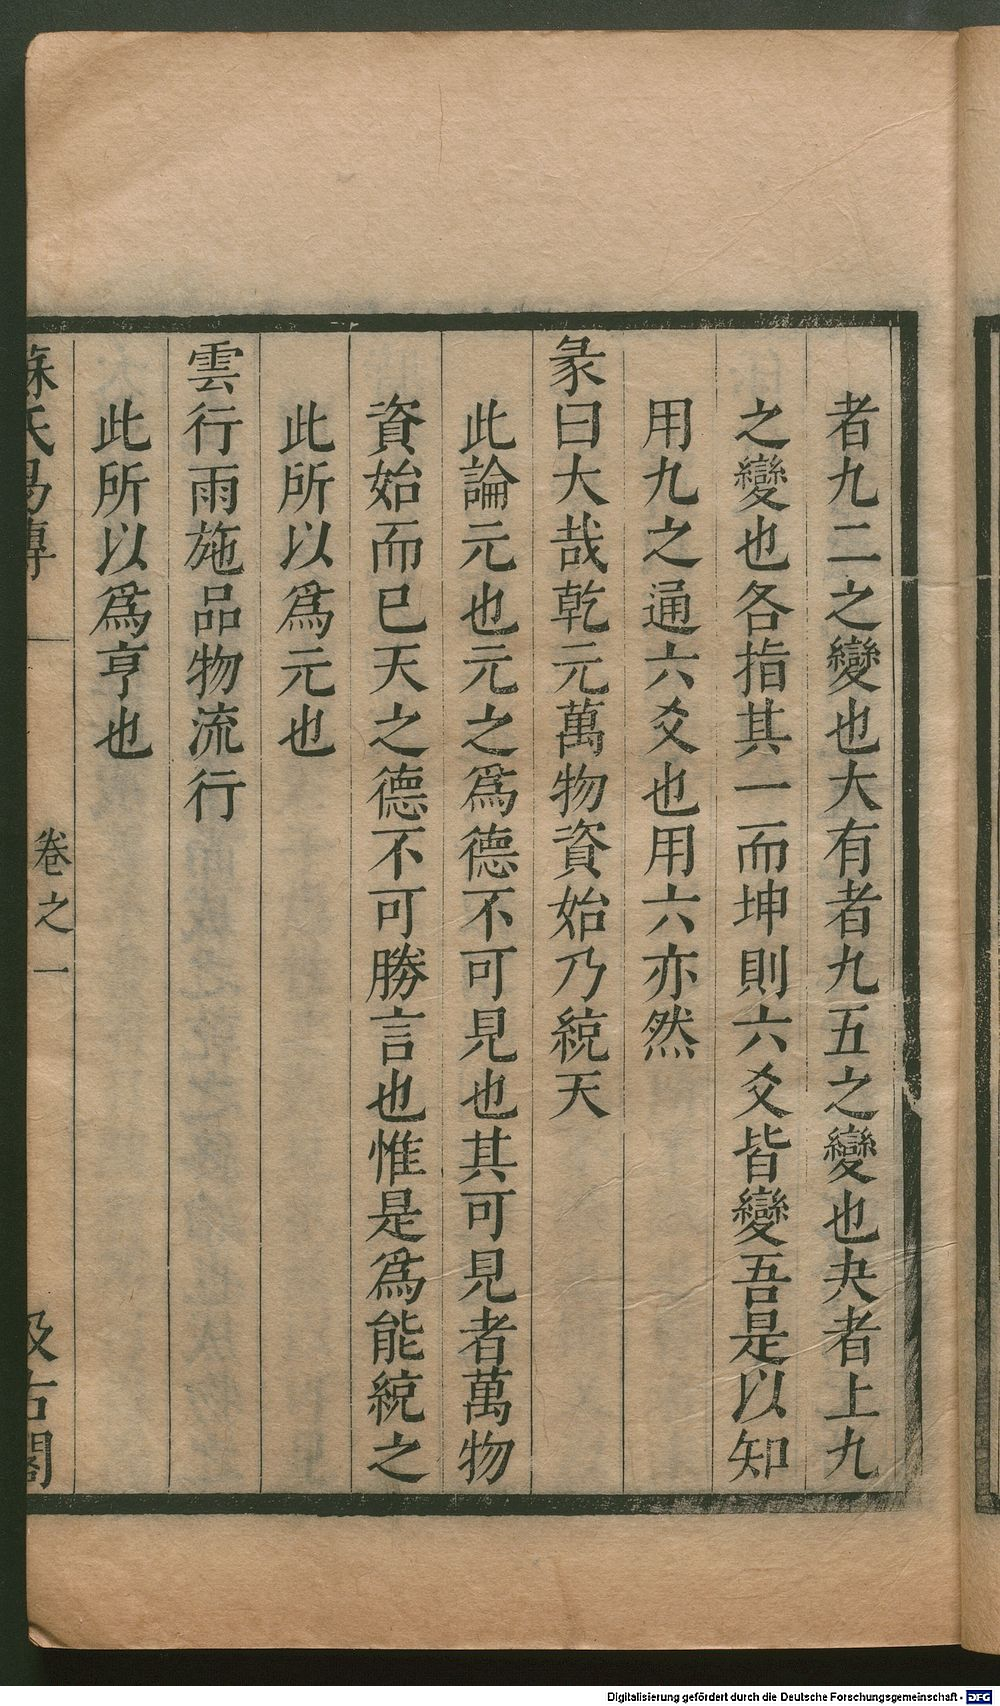 者九二之變也大有者九五之變也夬者上九
之變也各指其一而坤則六爻皆變吾是以知
用九之通六爻也用六亦然
彖曰大哉乾元萬物資始乃統天
此論元也元之爲德不可見也其可見者萬物
資始而已天之德不可勝言也惟是爲能統之
此所以爲元也
雲行雨施品物流行
此所以爲亨也
蘇氏易傳 卷之一 汲古閣
Digitalisierung gefördert durch die Deutsche Forschungsgemeinschaft - DFG